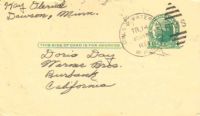 Dawson, Minn.
THIS SIDE OF CARD IS FOR ADDRESS
Doris Day
Warner Bros.
Burbank
California